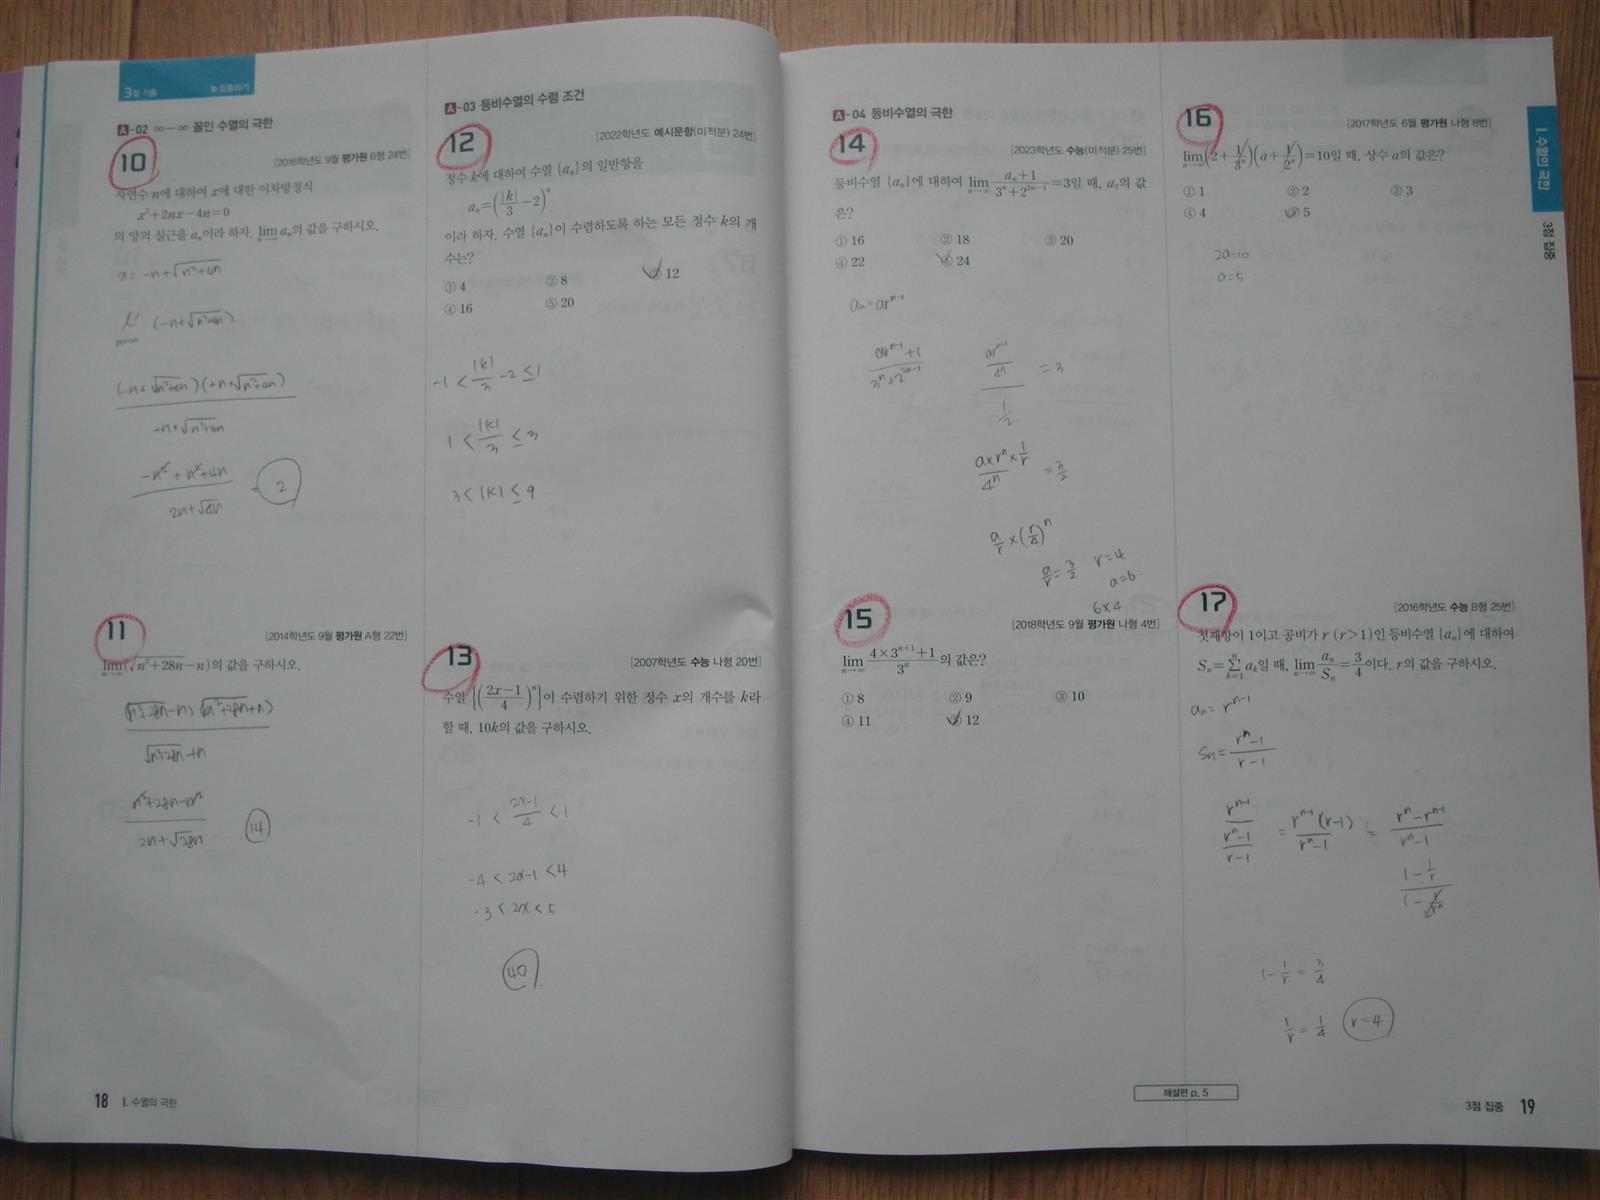 3점 기출 » 집중하기
A-02 ∞-∞ 꼴인 수열의 극한
10
[2016학년도 9월 평가원 B형 24번]
자연수 n에 대하여 x에 대한 이차방정식
x²+2nx-4n=0
의 양의 실근을 aₙ이라 하자. lim n→∞ aₙ의 값을 구하시오.
x = -n+√(n²+4n)
n→∞ (-n+√(n²+4n))
(-n+√(n²+4n))(+n+√(n²+4n))
+n+√(n²+4n)
-n²+n²+4n
2n+√4n
= 2
11
[2014학년도 9월 평가원 A형 22번]
lim n→∞ (√(n²+28n)-n)의 값을 구하시오.
(√(n²+28n)-n)(√(n²+28n)+n)
√(n²+28n)+n
n²+28n-n²
2n+√28n
14
18 I. 수열의 극한
A-03 등비수열의 수렴 조건
12
[2022학년도 예시문항(미적분) 24번]
정수 k에 대하여 수열 {aₙ}의 일반항을
aₙ=(|k|/3-2)ⁿ
이라 하자. 수열 {aₙ}이 수렴하도록 하는 모든 정수 k의 개
수는?
① 4 ② 8 ③ 12
④ 16 ⑤ 20
-1 < |k|/3 -2 ≤ 1
1 < |k|/3 ≤ 3
3 < |k| ≤ 9
13
[2007학년도 수능 나형 20번]
수열 {((2x-1)/4)ⁿ}이 수렴하기 위한 정수 x의 개수를 k라
할 때, 10k의 값을 구하시오.
-1 < (2x-1)/4 < 1
-4 < 2x-1 < 4
-3 < 2x < 5
40
A-04 등비수열의 극한
14
[2023학년도 수능(미적분) 25번]
등비수열 {aₙ}에 대하여 lim n→∞ (aₙ+1)/(3ⁿ+2²ⁿ⁻¹)=3일 때, a₂의 값
은?
① 16 ② 18 ③ 20
④ 22 ⑤ 24
aₙ=arⁿ⁻¹
(arⁿ⁻¹+1)/(3ⁿ+2²ⁿ⁻¹)
(arⁿ⁻¹/4ⁿ)/(1/2) = 3
(a×rⁿ×1/r)/4ⁿ = 3/2
a/r×(r/4)ⁿ
a/r=3/2 r=4
a=6
6×4
15
[2018학년도 9월 평가원 나형 4번]
lim n→∞ (4×3ⁿ⁺¹+1)/3ⁿ의 값은?
① 8 ② 9 ③ 10
④ 11 ⑤ 12
16
[2017학년도 6월 평가원 나형 8번]
lim n→∞ (2+1/3ⁿ)(a+1/2ⁿ)=10일 때, 상수 a의 값은?
① 1 ② 2 ③ 3
④ 4 ⑤ 5
2a=10
a=5
17
[2016학년도 수능 B형 25번]
첫째항이 1이고 공비가 r (r>1)인 등비수열 {aₙ}에 대하여
Sₙ=Σ(k=1,n) aₖ일 때, lim n→∞ aₙ/Sₙ=3/4이다. r의 값을 구하시오.
aₙ=rⁿ⁻¹
Sₙ=(rⁿ-1)/(r-1)
rⁿ⁻¹/((rⁿ-1)/(r-1)) = rⁿ⁻¹(r-1)/(rⁿ-1) = (rⁿ-rⁿ⁻¹)/(rⁿ-1)
(1-1/r)/(1-1/rⁿ)
1-1/r=3/4
1/r=1/4 r=4
해설편 p. 5
3점 집중 19
I. 수열의 극한
3점 집중